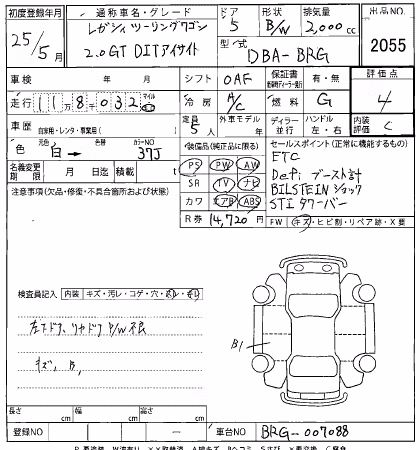 初度登録年月 通称車名・グレード ドア 形状 排気量 出品NO
25/5月 レガシィ ツーリングワゴン 5 B/W 2,000cc 2055
2.0GT DITアイサイト 型式 DBA-BRG
車検 年 月 シフト 0AF 保証書 有・無 評価点
走行 118,032 マイル 冷房 A/C 燃料 G 4
車歴 自家用・レンタ・事業用( ) 定員 5人 外車モデル 年 ディーラー 並行 ハンドル 左・右 内装評価 C
色 元色 白→ 色替 カラーNO 37J
装備品(純正品に限る) セールスポイント(正常に機能するもの)
名義変更期限 月 日迄 積載 PS PW AW ETC
注意事項(欠品・修復・不具合箇所および状態) SR TV ナビ Defi ブースト計
カワ エアB ABS BILSTEINショック
R券 14,720円 STIタワーバー
FW キズ・ヒビ割・リペア跡・X要
検査員記入 内装 キズ・汚レ・コゲ・穴
左フドア、リヤドア P/W不良
キズ、B、
B1
長さ cm 幅 cm 高さ cm
登録NO 車台NO BRG-007088